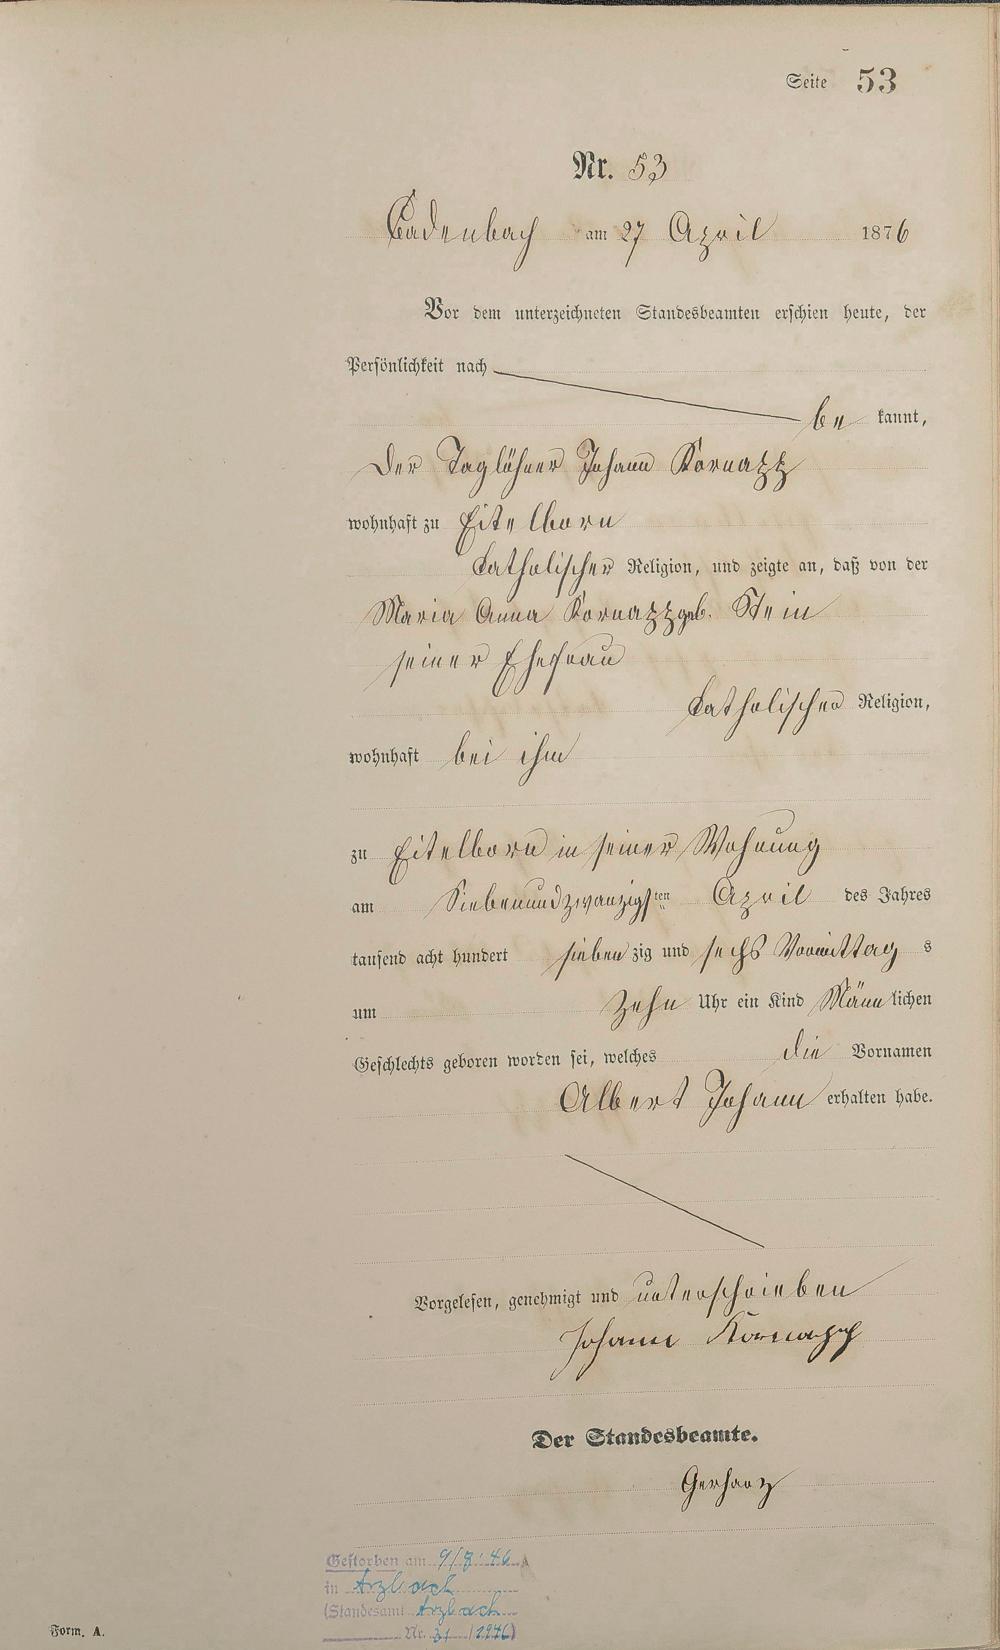 Seite 53
Nr. 53
Cadenbach am 27 April 1876
Vor dem unterzeichneten Standesbeamten erschien heute, der
Persönlichkeit nach
be kannt,
der Taglöhner Johann Kornapp
wohnhaft zu Eitelborn
katholischer Religion, und zeigte an, daß von der
Maria Anna Kornapp geb. Stein
seiner Ehefrau
katholischer Religion,
wohnhaft bei ihm
zu Eitelborn in seiner Wohnung
am Siebenundzwanzigsten April des Jahres
tausend acht hundert siebenzig und sechs Vormittag s
um Zehn Uhr ein Kind Männlichen
Geschlechts geboren worden sei, welches die Vornamen
Albert Johann erhalten habe.
Vorgelesen, genehmigt und unterschrieben
Johann Kornapp
Der Standesbeamte.
Gerharz
Gestorben am 9/8. 46
in Arzbach
(Standesamt Arzbach
Nr. 31 /1946)
Form. A.